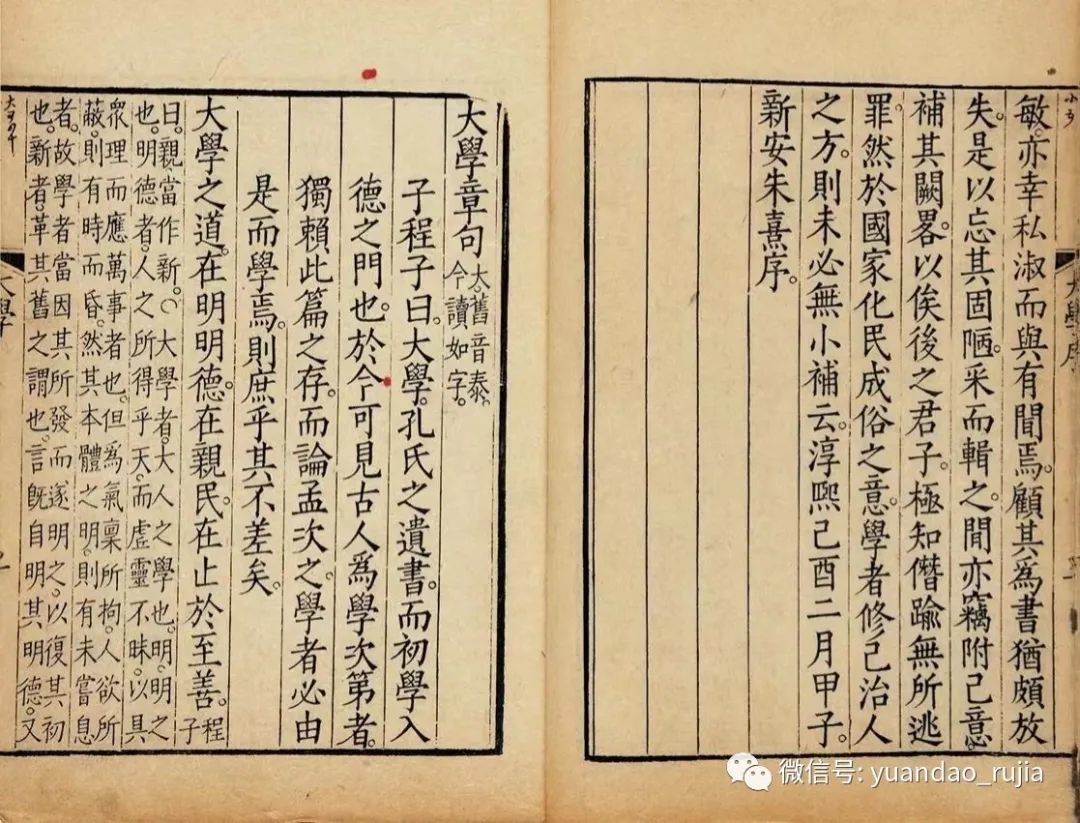 敏。亦幸私淑而與有聞焉。顧其為書猶頗放
失。是以忘其固陋。采而輯之。間亦竊附己意。
補其闕畧。以俟後之君子。極知僭踰無所逃
罪。然於國家化民成俗之意。學者修己治人
之方。則未必無小補云。淳熙己酉二月甲子。
新安朱熹序。
大學序
大學章句
大。舊音泰。
今讀如字。
子程子曰。大學。孔氏之遺書。而初學入
德之門也。於今可見古人為學次第者。
獨賴此篇之存。而論孟次之。學者必由
是而學焉。則庶乎其不差矣。
大學之道。在明明德。在親民。在止於至善。
程
子
曰。親當作新。○大學者。大人之學也。明。明之
也。明德者。人之所得乎天。而虛靈不昧。以具
衆理而應萬事者也。但為氣稟所拘。人欲所
蔽。則有時而昏。然其本體之明。則有未嘗息
者。故學者當因其所發而遂明之。以復其初
也。新者。革其舊之謂也。言既自明其明德。又
大學
微信号: yuandao_rujia